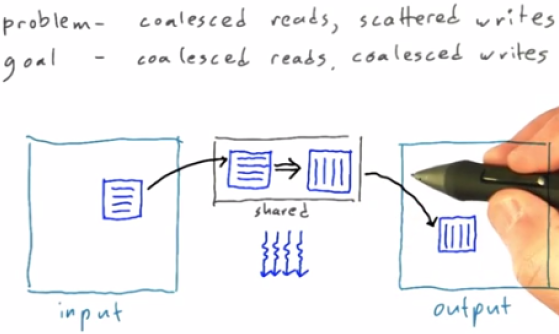 problem- coalesced reads, scattered writes
goal - coalesced reads, coalesced writes
shared
input
output